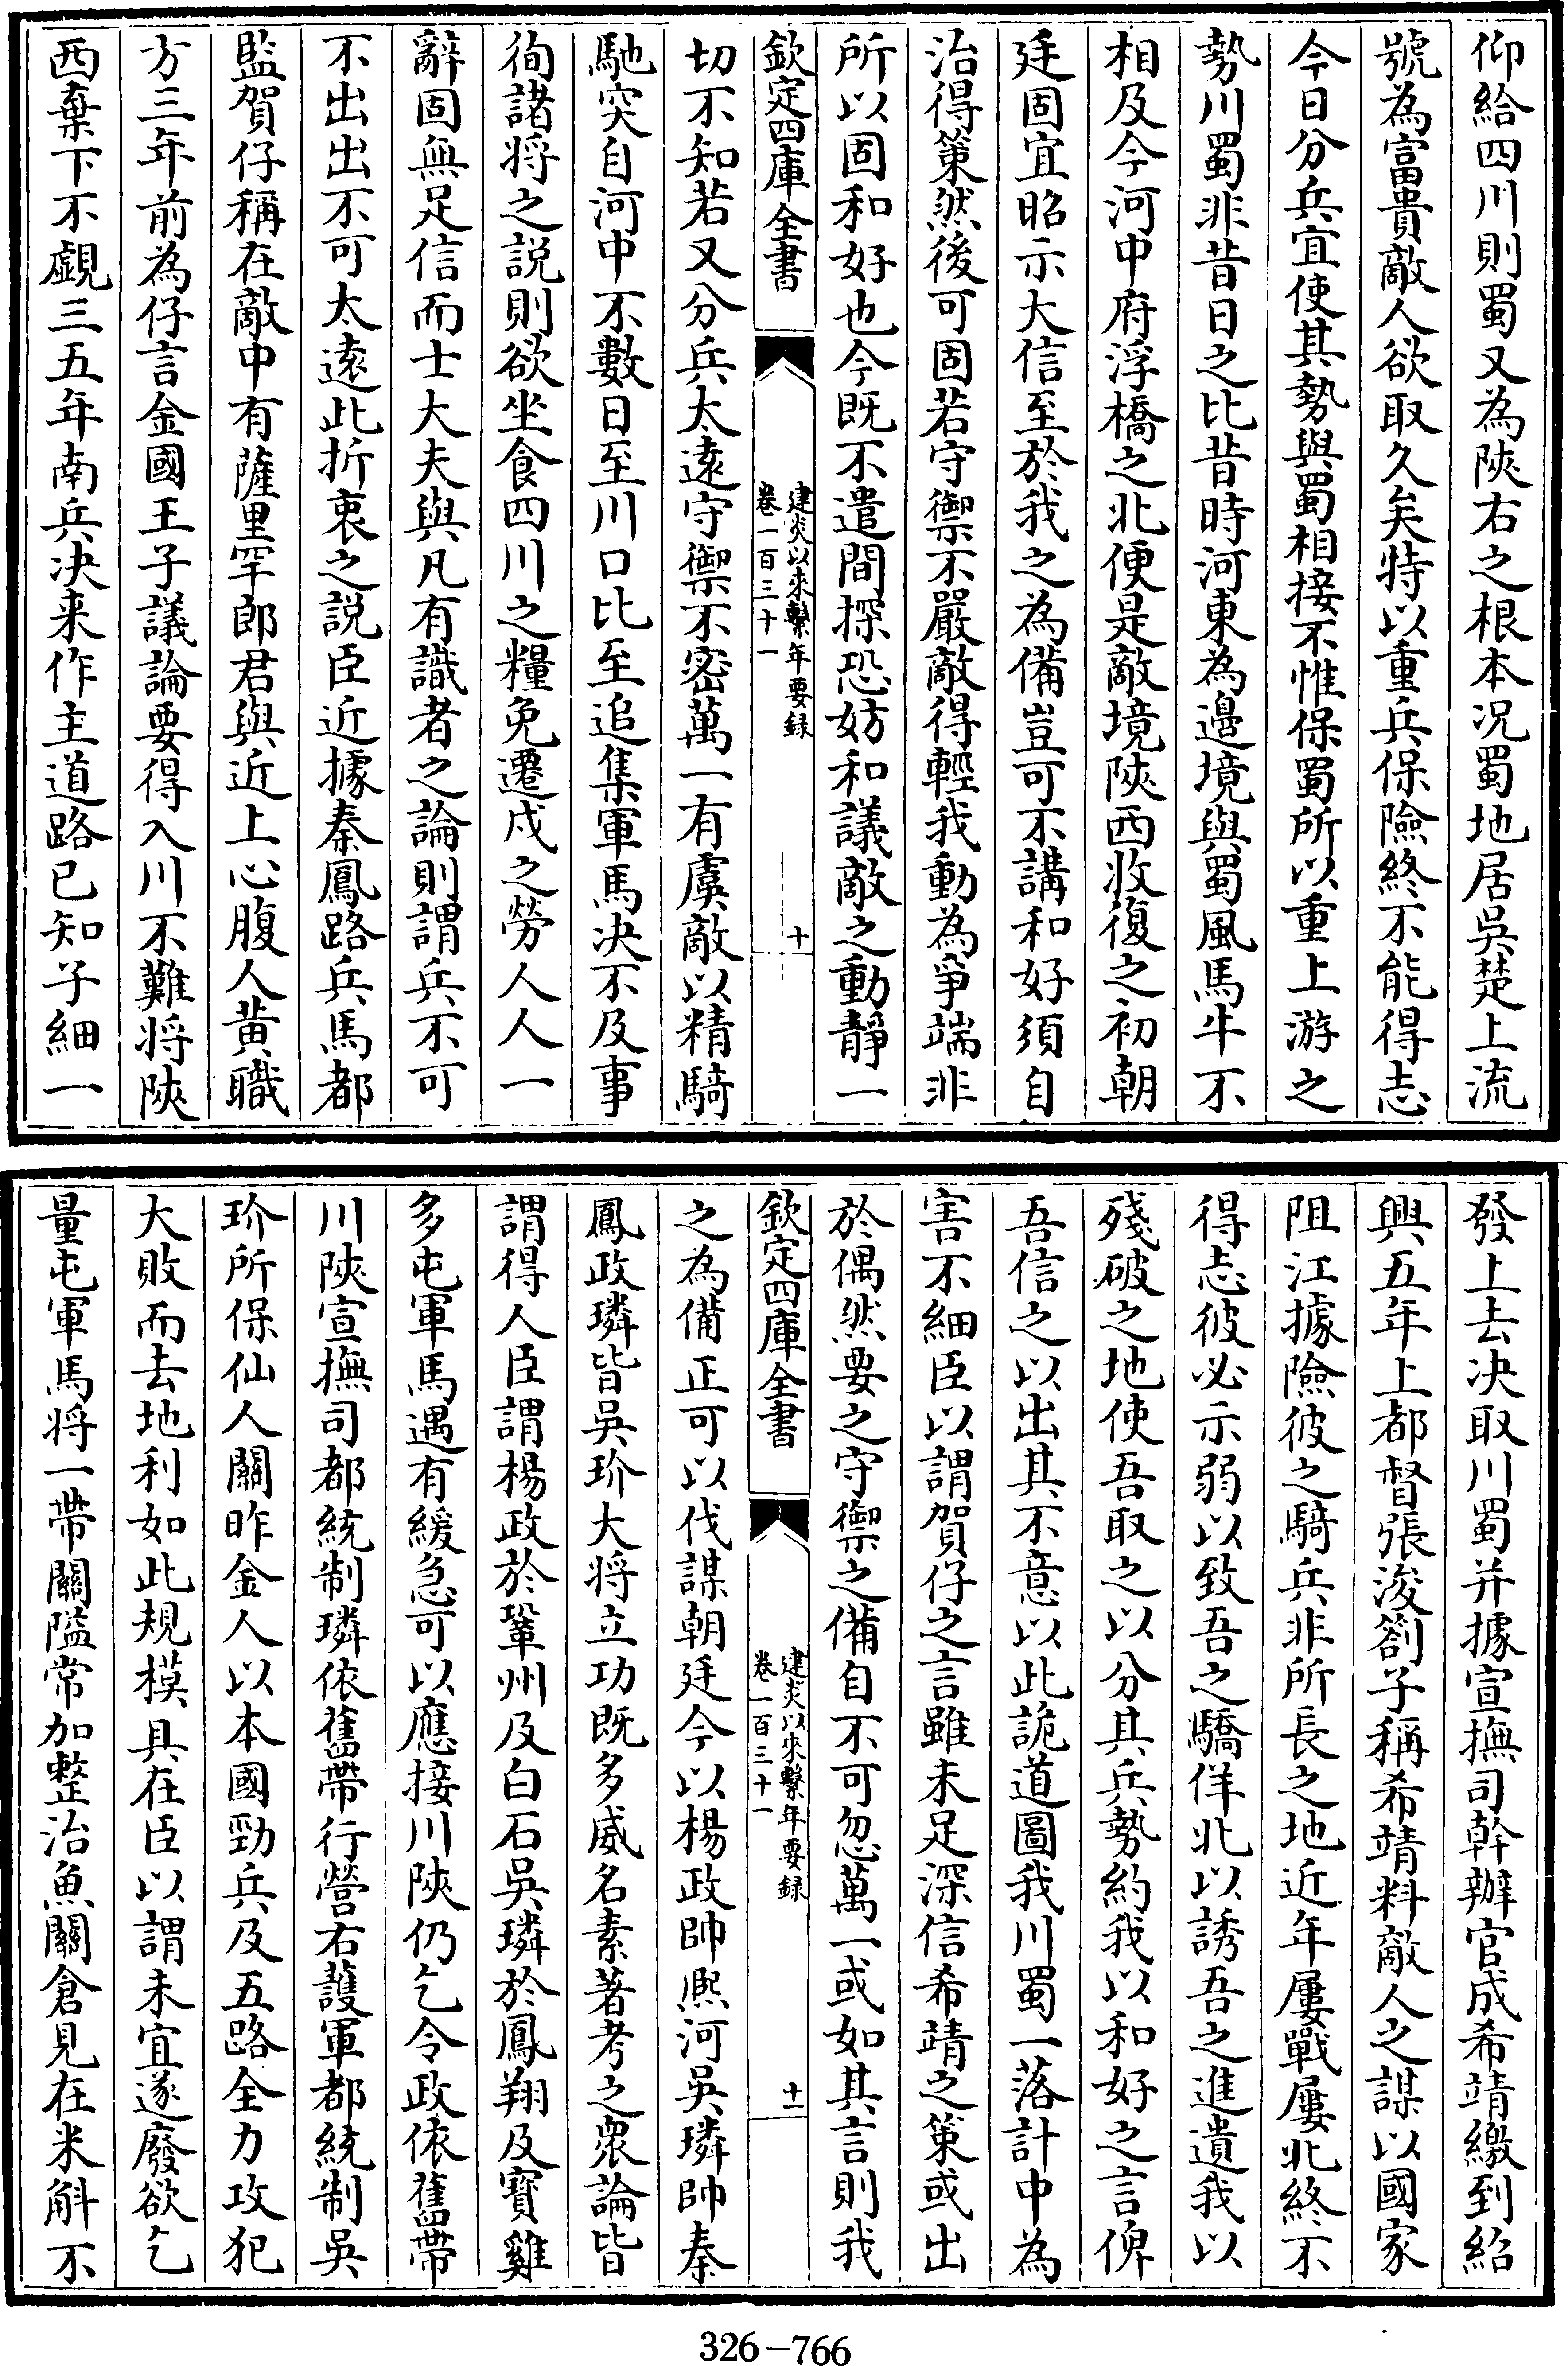 仰給四川則蜀又為陝右之根本况蜀地居吳楚上流
號為富貴敵人欲取久矣特以重兵保險終不能得志
今日分兵宜使其勢與蜀相接不惟保蜀所以重上游之
勢川蜀非昔日之比昔時河東為邊境與蜀風馬牛不
相及今河中府浮橋之北便是敵境陝西收復之初朝
廷固宜昭示大信至於我之為備豈可不講和好須自
治得策然後可固若守禦不嚴敵得輕我動為爭端非
所以固和好也今既不遣間探恐妨和議敵之動靜一
欽定四庫全書
建炎以來繫年要録
卷一百三十一
十
切不知若又分兵太遠守禦不密萬一有虞敵以精騎
馳突自河中不數日至川口比至追集軍馬决不及事
徇諸將之説則欲坐食四川之糧免遷戍之勞人人一
辭固無足信而士大夫與凡有識者之論則謂兵不可
不出出不可太遠此折衷之説臣近據秦鳳路兵馬都
監賀仔稱在敵中有薩里罕郎君與近上心腹人黄職
方三年前為仔言金國王子議論要得入川不難將陝
西棄下不覷三五年南兵决来作主道路已知子細一
發上去决取川蜀并據宣撫司幹辦官成希靖繳到紹
興五年上都督張浚劄子稱希靖料敵人之謀以國家
阻江據險彼之騎兵非所長之地近年屢戰屢北終不
得志彼必示弱以致吾之驕佯北以誘吾之進遺我以
殘破之地使吾取之以分其兵勢約我以和好之言俾
吾信之以出其不意以此詭道圖我川蜀一落計中為
害不細臣以謂賀仔之言雖未足深信希靖之策或出
於偶然要之守禦之備自不可忽萬一或如其言則我
欽定四庫全書
建炎以來繫年要録
卷一百三十一
十一
之為備正可以伐謀朝廷今以楊政帥熈河吳璘帥秦
鳳政璘皆吳玠大將立功既多威名素著考之衆論皆
謂得人臣謂楊政於鞏州及白石吳璘於鳳翔及寳雞
多屯軍馬遇有緩急可以應接川陝仍乞令政依舊帶
川陝宣撫司都統制璘依舊帶行營右護軍都統制吳
玠所保仙人關昨金人以本國勁兵及五路全力攻犯
大敗而去地利如此規模具在臣以謂未宜遂廢欲乞
量屯軍馬將一帶關隘常加整治魚關倉見在米斛不
326-766